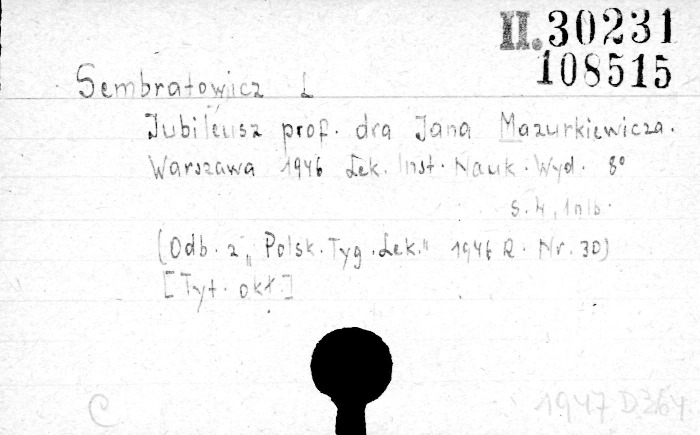 II. 30231
108515
Sembratowicz L
Jubileusz prof. dra Jana Mazurkiewicza.
Warszawa 1946 Lek. Inst. Nauk. Wyd. 8°
s. 4, 1 nlb.
(Odb. z „Polsk. Tyg. Lek." 1946 R. Nr. 30)
[Tyt. okł.]
C 1947 D 364.